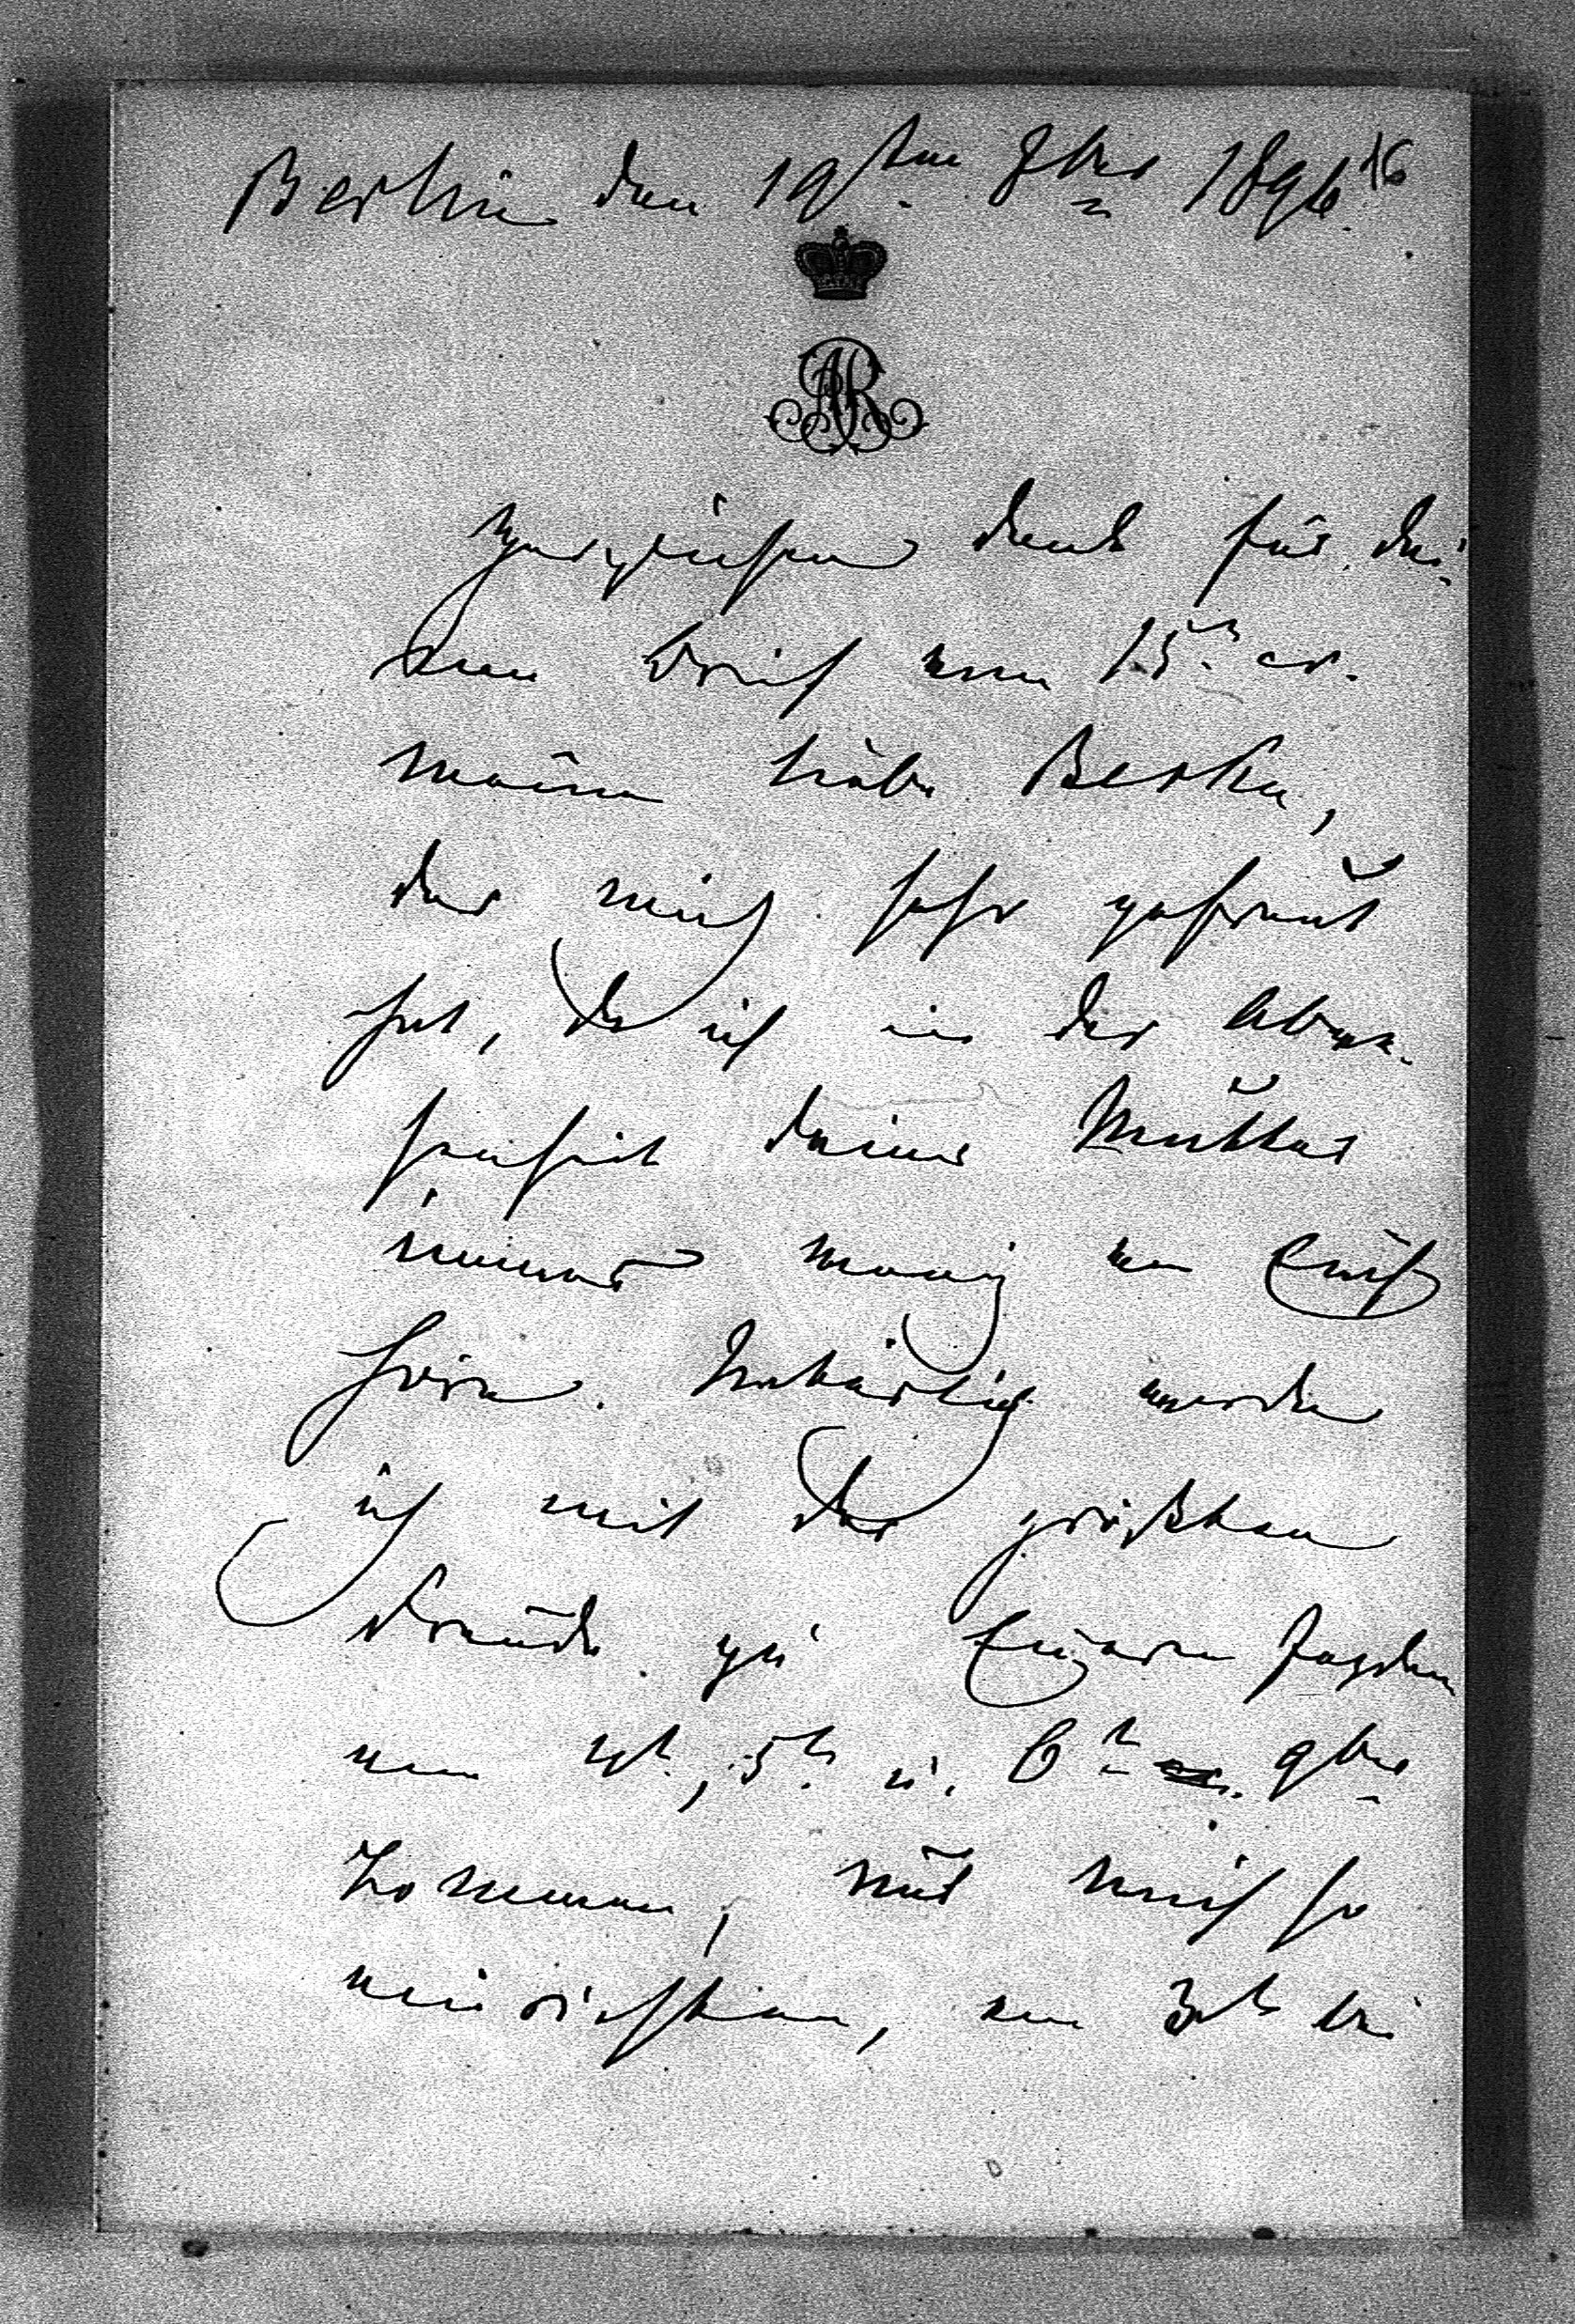 Berlin den 19ten 8ber 1896.
16
AR
Herzlichen Dank für Dei-
nen Brief vom 15t. cr.
meine liebe Bertha,
der mich sehr gefreut
hat, da ich in der Abwe-
senheit Deiner Mutter
immer wenig von Euch
höre. Natürlich werde
ich mit der größten
Freude zu Eueren Jagden
am 4t., 5t. u. 6t. 9ber
kommen, und mich so
einrichten, am 3t. bei